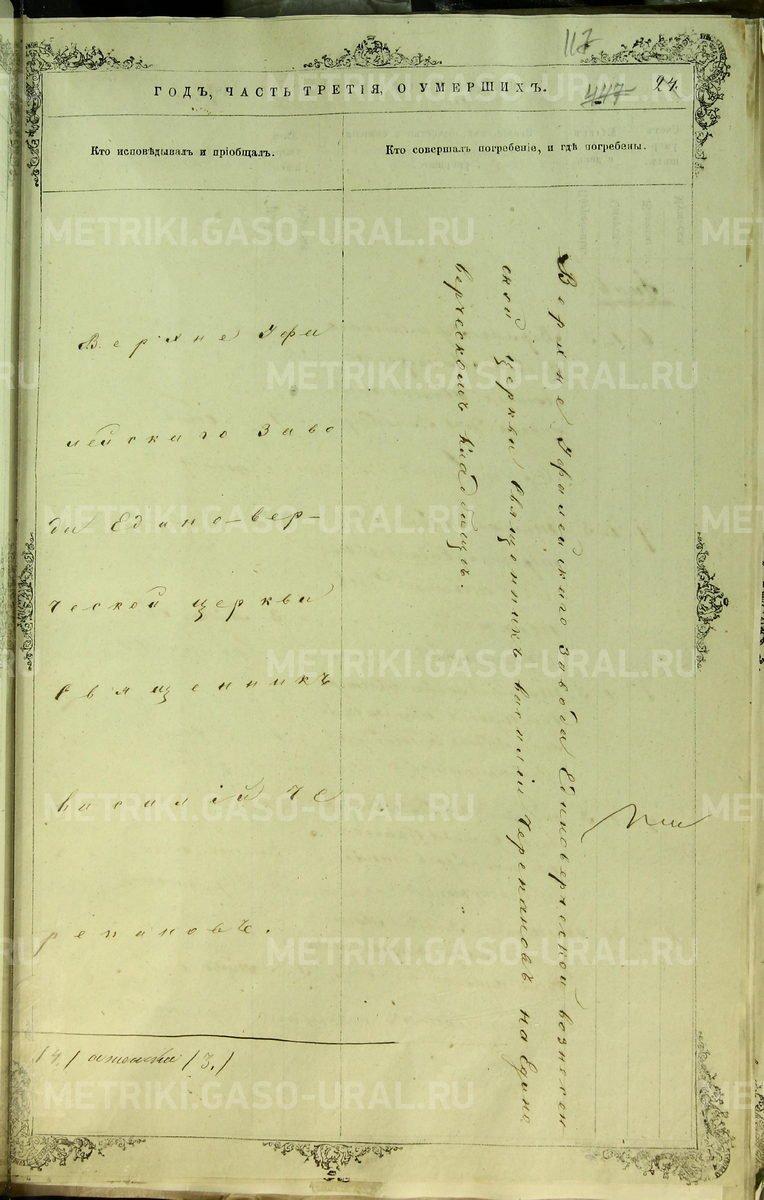 117
ГОДЪ, ЧАСТЬ ТРЕТІЯ, О УМЕРШИХЪ.
447
24.
Кто исповѣдывалъ и пріобщалъ.
Кто совершалъ погребеніе, и гдѣ погребены.
Верхне Уфа
лейскаго Заво
да Едино-вер-
ческой церкви
Священникъ
Василій Че
репановъ.
Верхне Уфалейскаго завода Единоверческой вознесен
ской церкви Священникъ Василій Черепановъ на Едино
верческомъ кладбищѣ.
METRIKI.GASO-URAL.RU